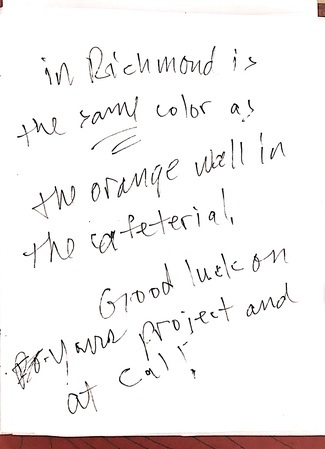 in Richmond is
the same color as
the orange wall in
the cafeterial.
Good luck on
yours project and
at Cal!